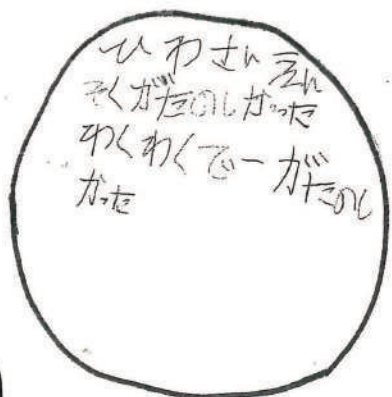 ひわさん えん
そくがたのしかった
わくわくでーがたのし
かった